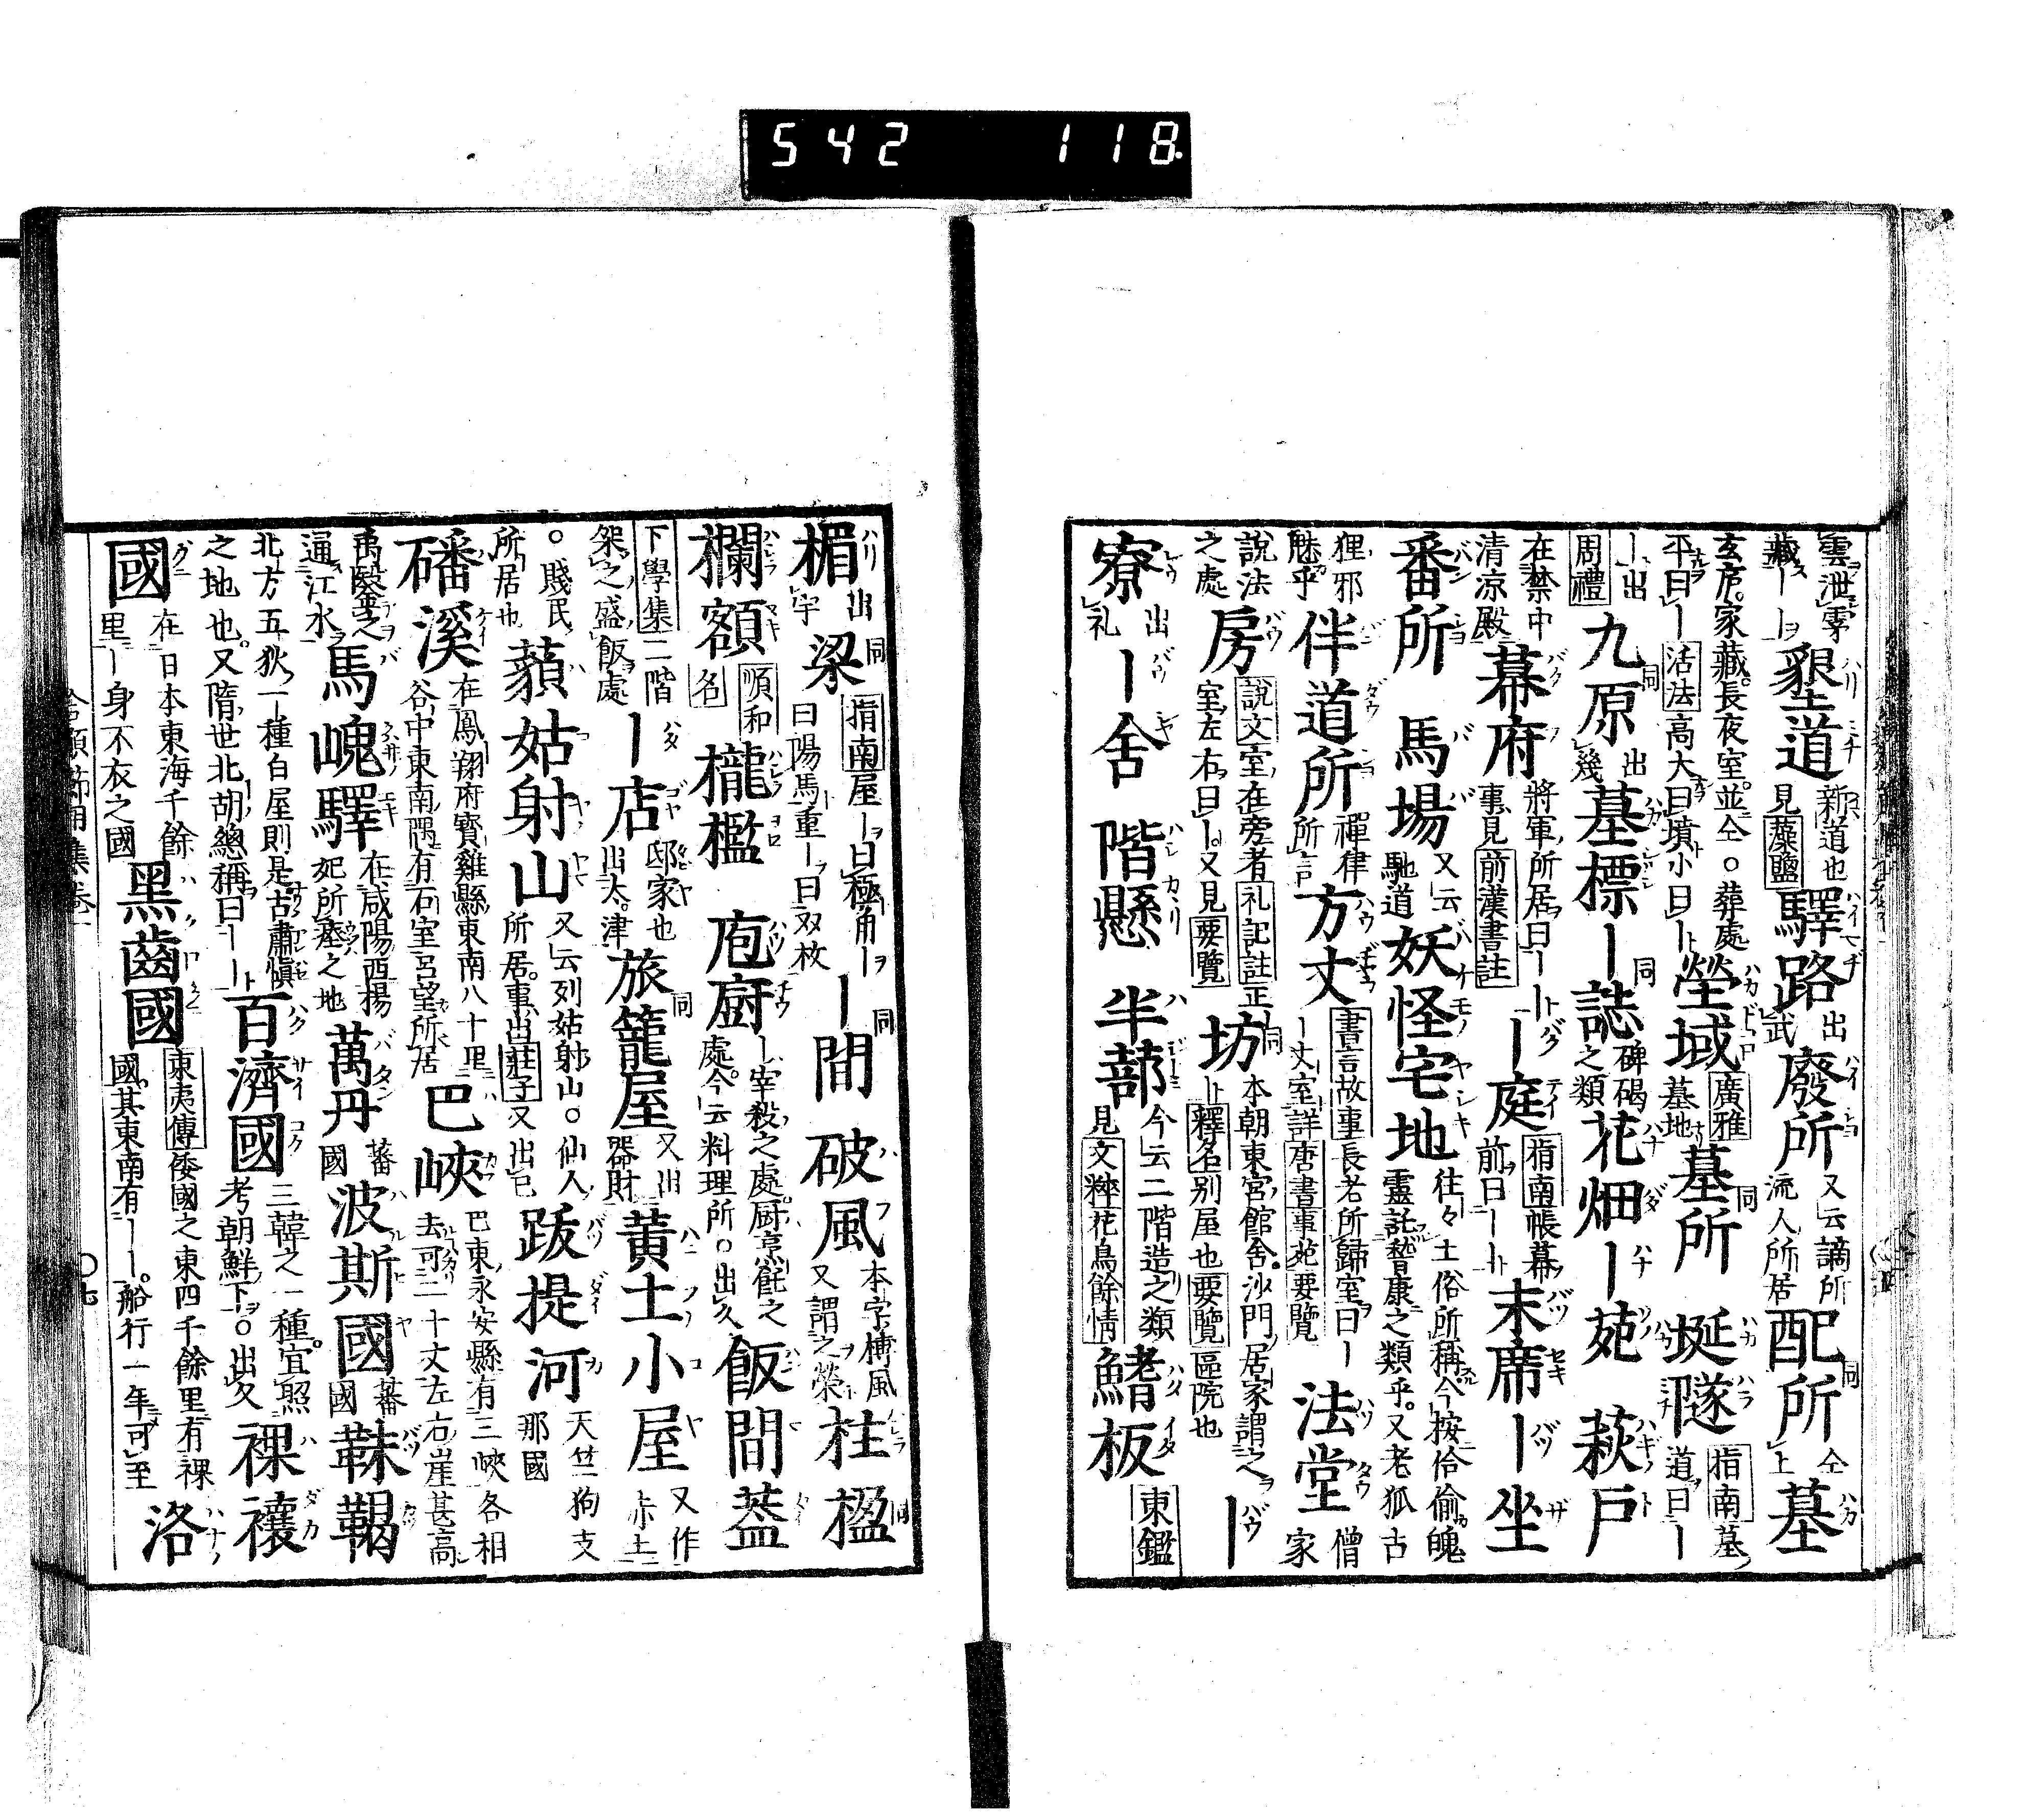 542 118.
雲泄雩 藏ーー 墾道 新道也 見藻鹽 驛路 出武 廢所 又云謫所 流人所居 配所 同 仝上 墓
玄庑。家藏。長夜室。並仝○葬處 平曰ー 活法 高大曰墳小曰ー 塋域 廣雅 墓地 墓所 同 埏隧 指南 墓道曰ー
ー出 周禮 九原 同 出幾 墓標 ー誌 同 碑碣之類 花畑 ー苑 萩戸
在禁中 清凉殿 幕府 將軍所居曰ー 事見 前漢書註 ー庭 指南 帳幕前曰ーー 末席 ー坐
番所 馬場 又云馳道 妖怪宅地 往々土俗所稱今按佁偷魄 靈託嵆康之類乎。又老狐古
狸邪魅乎 伴道所 禪律所言 方丈 書言故事 長者所歸室曰ー ー丈室詳 唐書 事苑 要覽 法堂 僧家
說法之處 房 說文 室在旁者 礼記註 正室左右曰ー。又見 要覽 坊 同 本朝東宮館舍。沙門居家謂之ー 釋名 別屋也 要覽 區院也
寮 出礼 ー舍 階懸 半蔀 今云二階造之類 見 文粹 花鳥餘情 鰭板 東鑑
楣 出字 梁 同 指南 屋ー曰極角ー曰陽馬重ー曰双枚 ー間 同 破風 本字榑風 又謂之榮 桂楹 同
欄額 順和名 櫳檻 庖厨 ー宰殺之處。厨烹飪之處。今云料理所。○出久 飯間 蓋
下學集 二階架之盛飯處 ー店 邸家也 出太。津 旅籠屋 同 又出器財 黄土小屋 又作赤土
○賤民所居也 藐姑射山 又云列姑射山。○仙人所居。事出 莊子 又出已 跋提河 天竺狗支那國
磻溪 在鳳翔府寶雞縣東南八十里 谷中東南隅有石室呂望所居 巴峽 巴東永安縣有三峽各相去可二十丈左右崖甚高
禹鑿之通江水 馬嵬驛 在咸陽西楊妃所塟之地 萬丹 蕃國 波斯國 蕃國 靺鞨
北方五狄ー種白屋則是古肅愼之地也。又隋世北胡總稱曰ーー 百濟國 三韓之一種。宜照考朝鮮下。○出久 裸禳
國 在日本東海千餘里ー身不衣之國 黑齒國 東夷傳 倭國之東四千餘里有裸國。其東南有ーー。船行一年可至 洛
合類節用集卷一 〇七